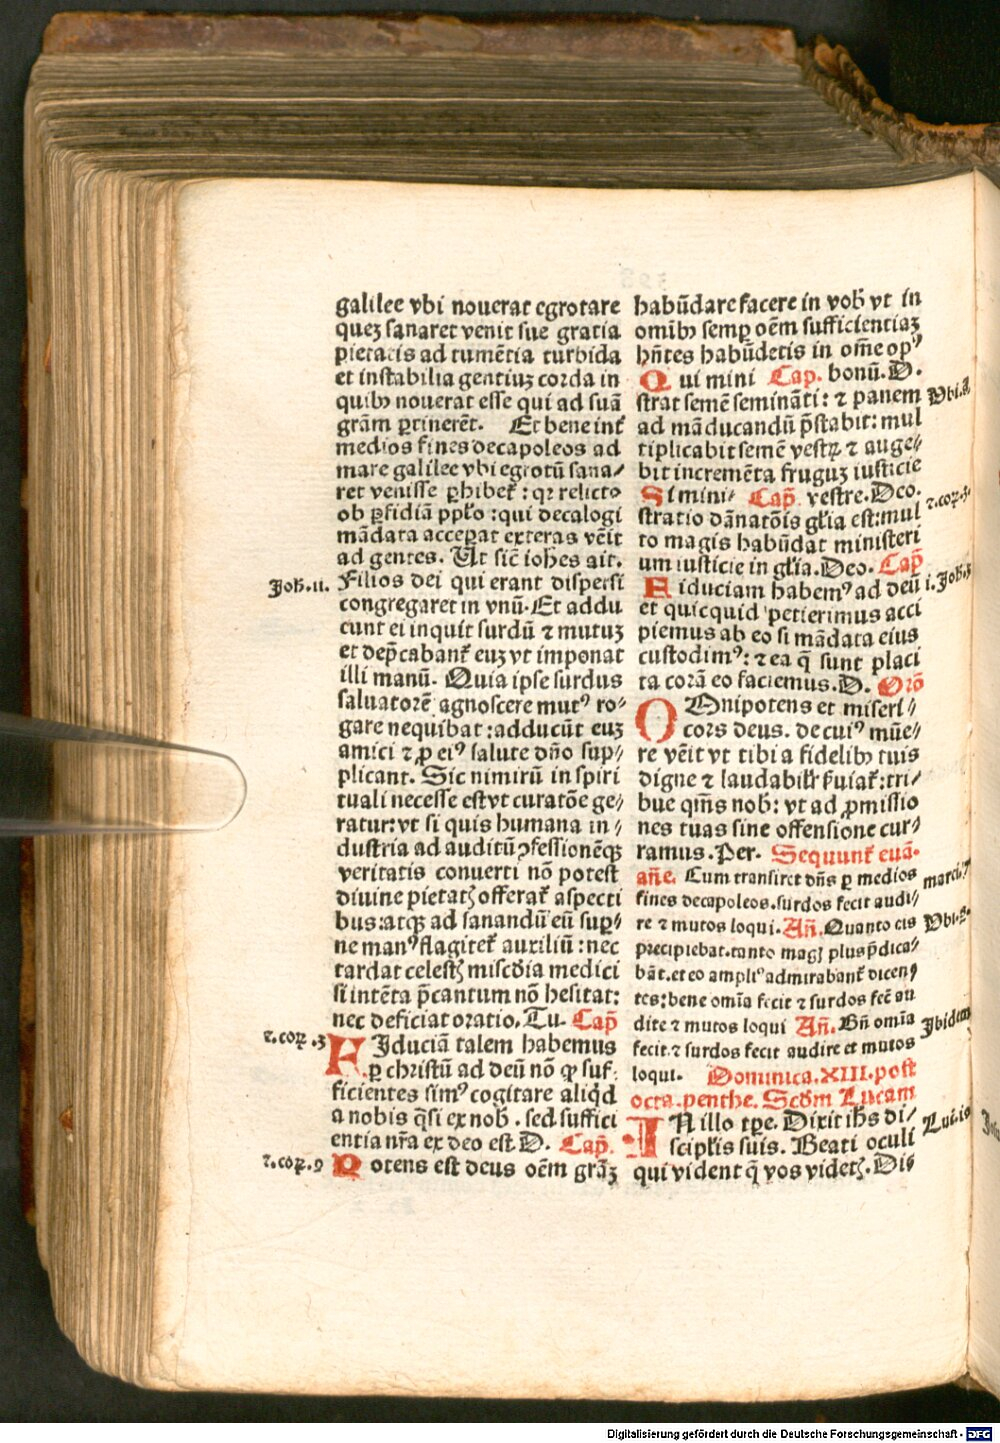 galilee vbi nouerat egrotare
queʒ sanaret venit sue gratia
pietatis ad tumētia turbida
et instabilia gentiuʒ corda in
quibꝰ nouerat esse qui ad suā
grām ꝑtinerēt. Et bene int̄
medios fines decapoleos ad
mare galilee vbi egrotū sana⸗
ret venisse ꝑhibet̄ : qꝛ relicto
ob ꝑfidiā ppło : qui decalogi
mādata acceperat exteras vēit
ad gentes. Ut sic̄ ioh̄es ait.
Joh. 11.
Filios dei qui erant dispersi
congregaret in vnū. Et addu
cunt ei inquit surdū ⁊ mutuʒ
et dep̄cabanť euʒ vt imponat
illi manū. Quia ipse surdus
saluatorē agnoscere mutꝰ ro⸗
gare nequibat : adducūt euʒ
amici ⁊ ꝓ eiꝰ salute dño sup⸗
plicant. Sic nimirū in spiri
tuali necesse est vt curatōe ge⸗
ratur: vt si quis humana in⸗
dustria ad auditū ↄfessionēqꝫ
veritatis conuerti nō potest
diuine pietatꝭ offeraŧ aspecti
bus: atqꝫ ad sanandū eū suꝑ⸗
ne manꝰ flagiteŧ auxiliū : nec
tardat celestꝭ misc̄dia medici
si intēta p̄cantum nō hesitat:
nec deficiat oratio. Tu. Cap̄
2. coꝝ. 3
FIduciā talem habemus
ꝑ christū ad deū nō ꝙ suf
ficientes simꝰ cogitare aliqͥd
a nobis q̄si ex nob̄. sed suffici
entia nr̄a ex deo est. D. Cap̄.
2. coꝝ. 9
Potens est deus oēm grāʒ
habūdare facere in vob̄ vt in
omibꝰ semꝑ oēm sufficientiaʒ
hn̄tes habūdetis in om̄e opꝰ
bonū. D.
Qui mini Cap.
Vbi. s̄
strat semē semināti: ⁊ panem
ad māducandū p̄stabit: mul
tiplicabit semē vestꝝ ⁊ auge⸗
bit incremēta fruguʒ iusticie
vestre. Deo.
Si mini⸗ Cap̄
2. coꝝ. 3.
stratio dānatōis gl̄ia est: mul
to magis habūdat ministeri
um iusticie in gl̄ia. Deo. Cap̄
Fiduciam habemꝰ ad deū
i. Joh. 3
et quicquid petierimus acci
piemus ab eo si mādata eius
custodimꝰ: ⁊ ea q̄ sunt placi
ta corā eo faciemus. D. Orō
OMnipotens et miseri⸗
cors deus. de cuiꝰ mūe⸗
re vēit vt tibi a fidelibꝰ tuis
digne ⁊ laudabilr̄ ẜuiaŧ: tri⸗
bue qm̄s nob̄: vt ad ꝓmissio
nes tuas sine offensione cur⸗
ramus. Per. Sequunŧ euā⸗
añe. Cum transiret dñs ꝑ medios
marci. 7
fines decapoleos. surdos fecit audi⸗
re ⁊ mutos loqui. Añ. Quanto eis
Vbi. s̄.
precipiebat. tanto magꝭ plus p̄dica⸗
bāt. et eo ampliꝰ admirabanŧ dicenꝭ
tes: bene omīa fecit ⁊ surdos fec̄ au
dire ⁊ mutos loqui Añ. Bñ omīa
Jbidem
fecit. ⁊ surdos fecit audire et mutos
loqui. Dominica. XIII. post
octa. penthe. Scd̄m Lucam
IN illo tꝑe. Dixit ih̄s di⸗
Lu. i.
scipl̄is suis. Beati oculi
qui vident q̄ vos videtꝭ. Dis
Digitalisierung gefördert durch die Deutsche Forschungsgemeinschaft - DFG